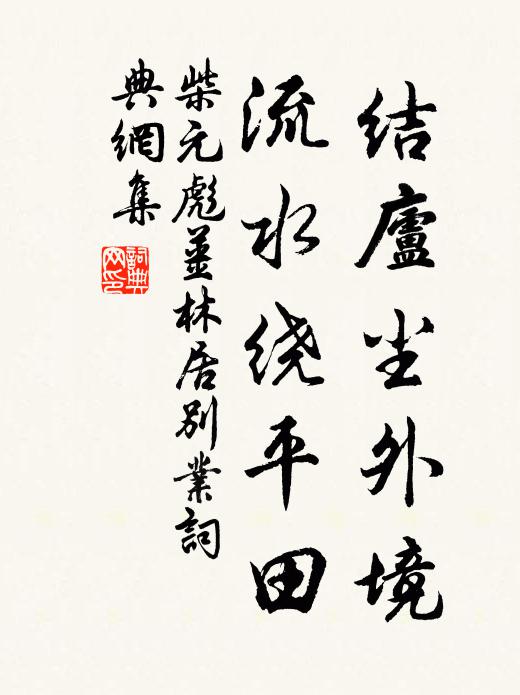 结廬尘外境
流水绕平田
柴元彪薑林居別業詞
典網集
詞典网印